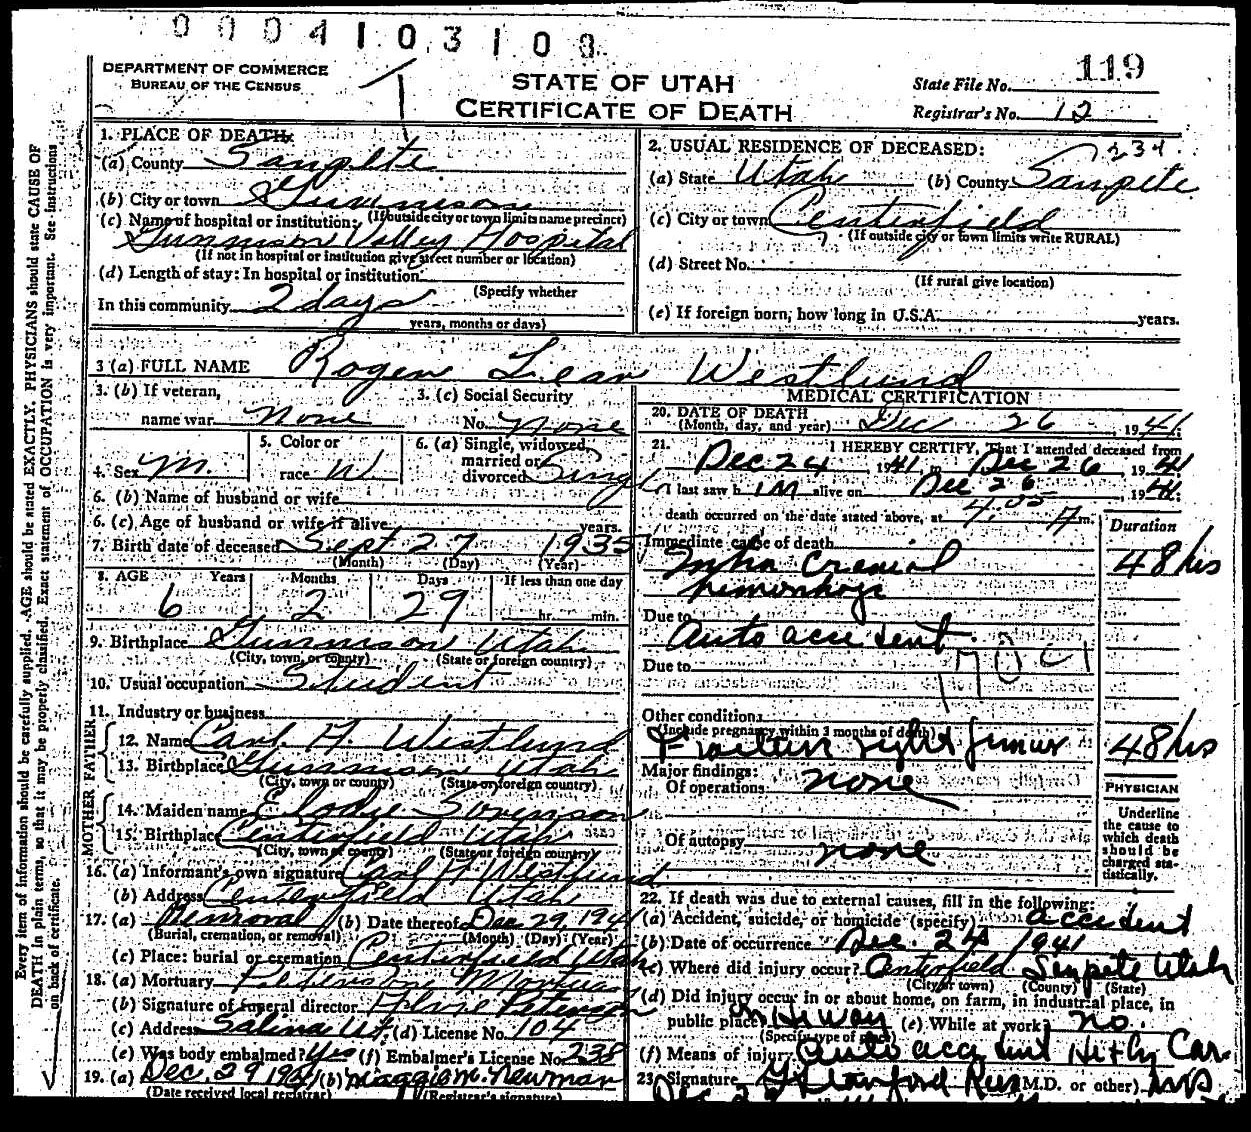 0004103100
DEPARTMENT OF COMMERCE
BUREAU OF THE CENSUS
STATE OF UTAH
CERTIFICATE OF DEATH
State File No. 119
Registrar's No. 12
Every item of information should be carefully supplied. AGE should be stated EXACTLY. PHYSICIANS should state CAUSE OF
DEATH in plain terms, so that it may be properly classified. Exact statement of OCCUPATION is very important. See instructions
on back of certificate.
1. PLACE OF DEATH:
(a) County Sanpete
(b) City or town Gunnison
(If outside city or town limits name precinct)
(c) Name of hospital or institution:
Gunnison Valley Hospital
(If not in hospital or institution give street number or location)
(d) Length of stay: In hospital or institution
(Specify whether
In this community 2 days
years, months or days)
2. USUAL RESIDENCE OF DECEASED:
234
(a) State Utah (b) County Sanpete
(c) City or town Centerfield
(If outside city or town limits write RURAL)
(d) Street No.
(If rural give location)
(e) If foreign born, how long in U.S.A. years.
3 (a) FULL NAME Roger Lean Westlund
3. (b) If veteran,
name war None
3. (c) Social Security
No. None
4. Sex M.
5. Color or
race W
6. (a) Single, widowed,
married or
divorced Singl
6. (b) Name of husband or wife
6. (c) Age of husband or wife if alive years.
7. Birth date of deceased Sept 27 1935
(Month) (Day) (Year)
8. AGE Years Months Days If less than one day
6 2 29 hr. min.
9. Birthplace Gunnison Utah
(City, town, or county) (State or foreign country)
10. Usual occupation Student
11. Industry or business
FATHER
12. Name Carl H. Westlund
13. Birthplace Gunnison Utah
(City, town or county) (State or foreign country)
MOTHER
14. Maiden name Sorenson
15. Birthplace Centerfield Utah
(City, town or county) (State or foreign country)
16. (a) Informant's own signature Carl H Westlund
(b) Address Centerfield Utah
17. (a) Removal (b) Date thereof Dec 29, 1941
(Burial, cremation, or removal) (Month) (Day) (Year)
(c) Place: burial or cremation Centerfield Utah
18. (a) Mortuary Peterson Mortuary
(b) Signature of funeral director Peterson
(c) Address Salina Ut. (d) License No. 104
(e) Was body embalmed? Yes (f) Embalmer's License No. 238
19. (a) Dec. 29 1941 (b) Maggie M. Newman
(Date received local registrar) (Registrar's signature)
MEDICAL CERTIFICATION
20. DATE OF DEATH
(Month, day, and year) Dec 26, 1941.
21. I HEREBY CERTIFY, That I attended deceased from
Dec. 24 1941 to Dec 26, 1941
I last saw him alive on Dec 26, 1941.
death occurred on the date stated above, at 4:05 A m.
Duration
Immediate cause of death
Intra Cranial 48 hrs
hemorrhage
Due to
Auto accident
Due to
170 c1
Other conditions
(Include pregnancy within 3 months of death)
Fracture right femur 48 hrs
Major findings:
Of operations: none
Of autopsy none
PHYSICIAN
Underline
the cause to
which death
should be
charged sta-
tistically.
22. If death was due to external causes, fill in the following:
(a) Accident, suicide, or homicide (specify) accident
(b) Date of occurrence Dec. 24 1941
(c) Where did injury occur? Centerfield Sanpete Utah
(City or town) (County) (State)
(d) Did injury occur in or about home, on farm, in industrial place, in
public place? In Hi way (e) While at work? no.
(Specify type of place)
(f) Means of injury auto accident Hit by Car.
23. Signature G Stanford Rees (M.D. or other) MD